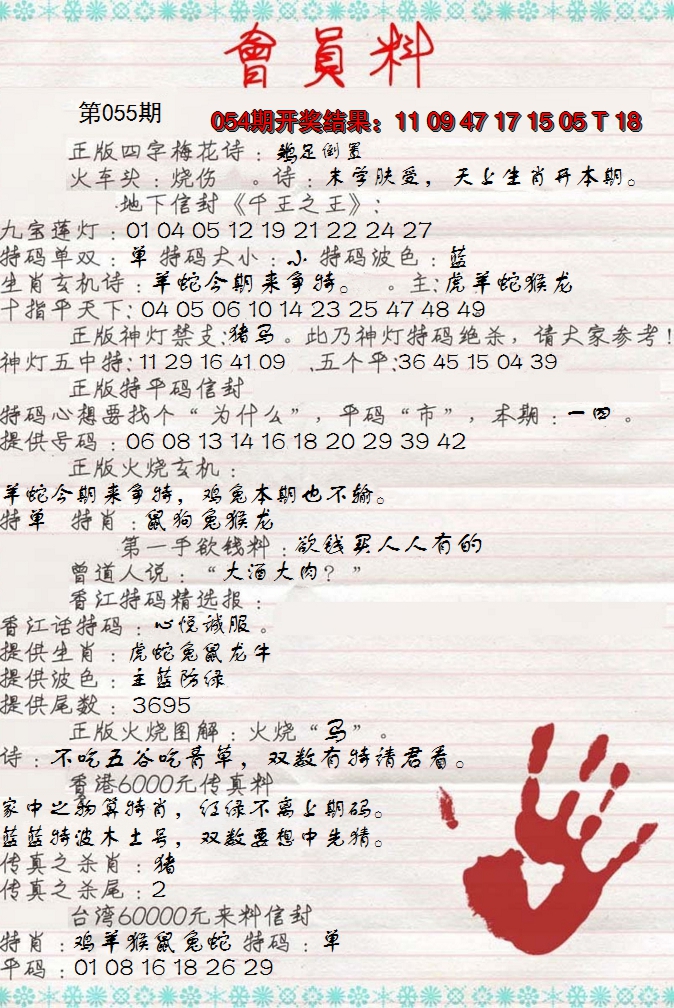 會員料
第055期
054期开奖结果：11 09 47 17 15 05 T 18
正版四字梅花诗：鹅足倒置
火车头：烧伤 。诗：未学肤受，天上生肖开本期。
地下信封《千王之王》：
九宝莲灯：01 04 05 12 19 21 22 24 27
特码单双：单 特码大小：小 特码波色：蓝
生肖玄机诗：羊蛇今期来争特。 。主：虎羊蛇猴龙
十指平天下：04 05 06 10 14 23 25 47 48 49
正版神灯禁支：猪马。此乃神灯特码绝杀，请大家参考！
神灯五中特：11 29 16 41 09 .五个平：36 45 15 04 39
正版特平码信封
特码心想要找个“为什么”，平码“市”，本期：一四。
提供号码：06 08 13 14 16 18 20 29 39 42
正版火烧玄机：
羊蛇今期来争特，鸡兔本期也不输。
特单 特肖：鼠狗兔猴龙
第一手欲钱料：欲钱买人人有的
曾道人说：“大酒大肉？”
香江特码精选报：
香江话特码：心悦诚服。
提供生肖：虎蛇兔鼠龙牛
提供波色：主蓝防绿
提供尾数：3695
正版火烧图解：火烧“马”。
诗：不吃五谷吃青草，双数有特请君看。
香港6000元传真料
家中之物算特肖，红绿不离上期码。
蓝蓝特波木土号，双数要想中先猜。
传真之杀肖：猪
传真之杀尾：2
台湾60000元来料信封
特肖：鸡羊猴鼠兔蛇 特码：单
平码：01 08 16 18 26 29